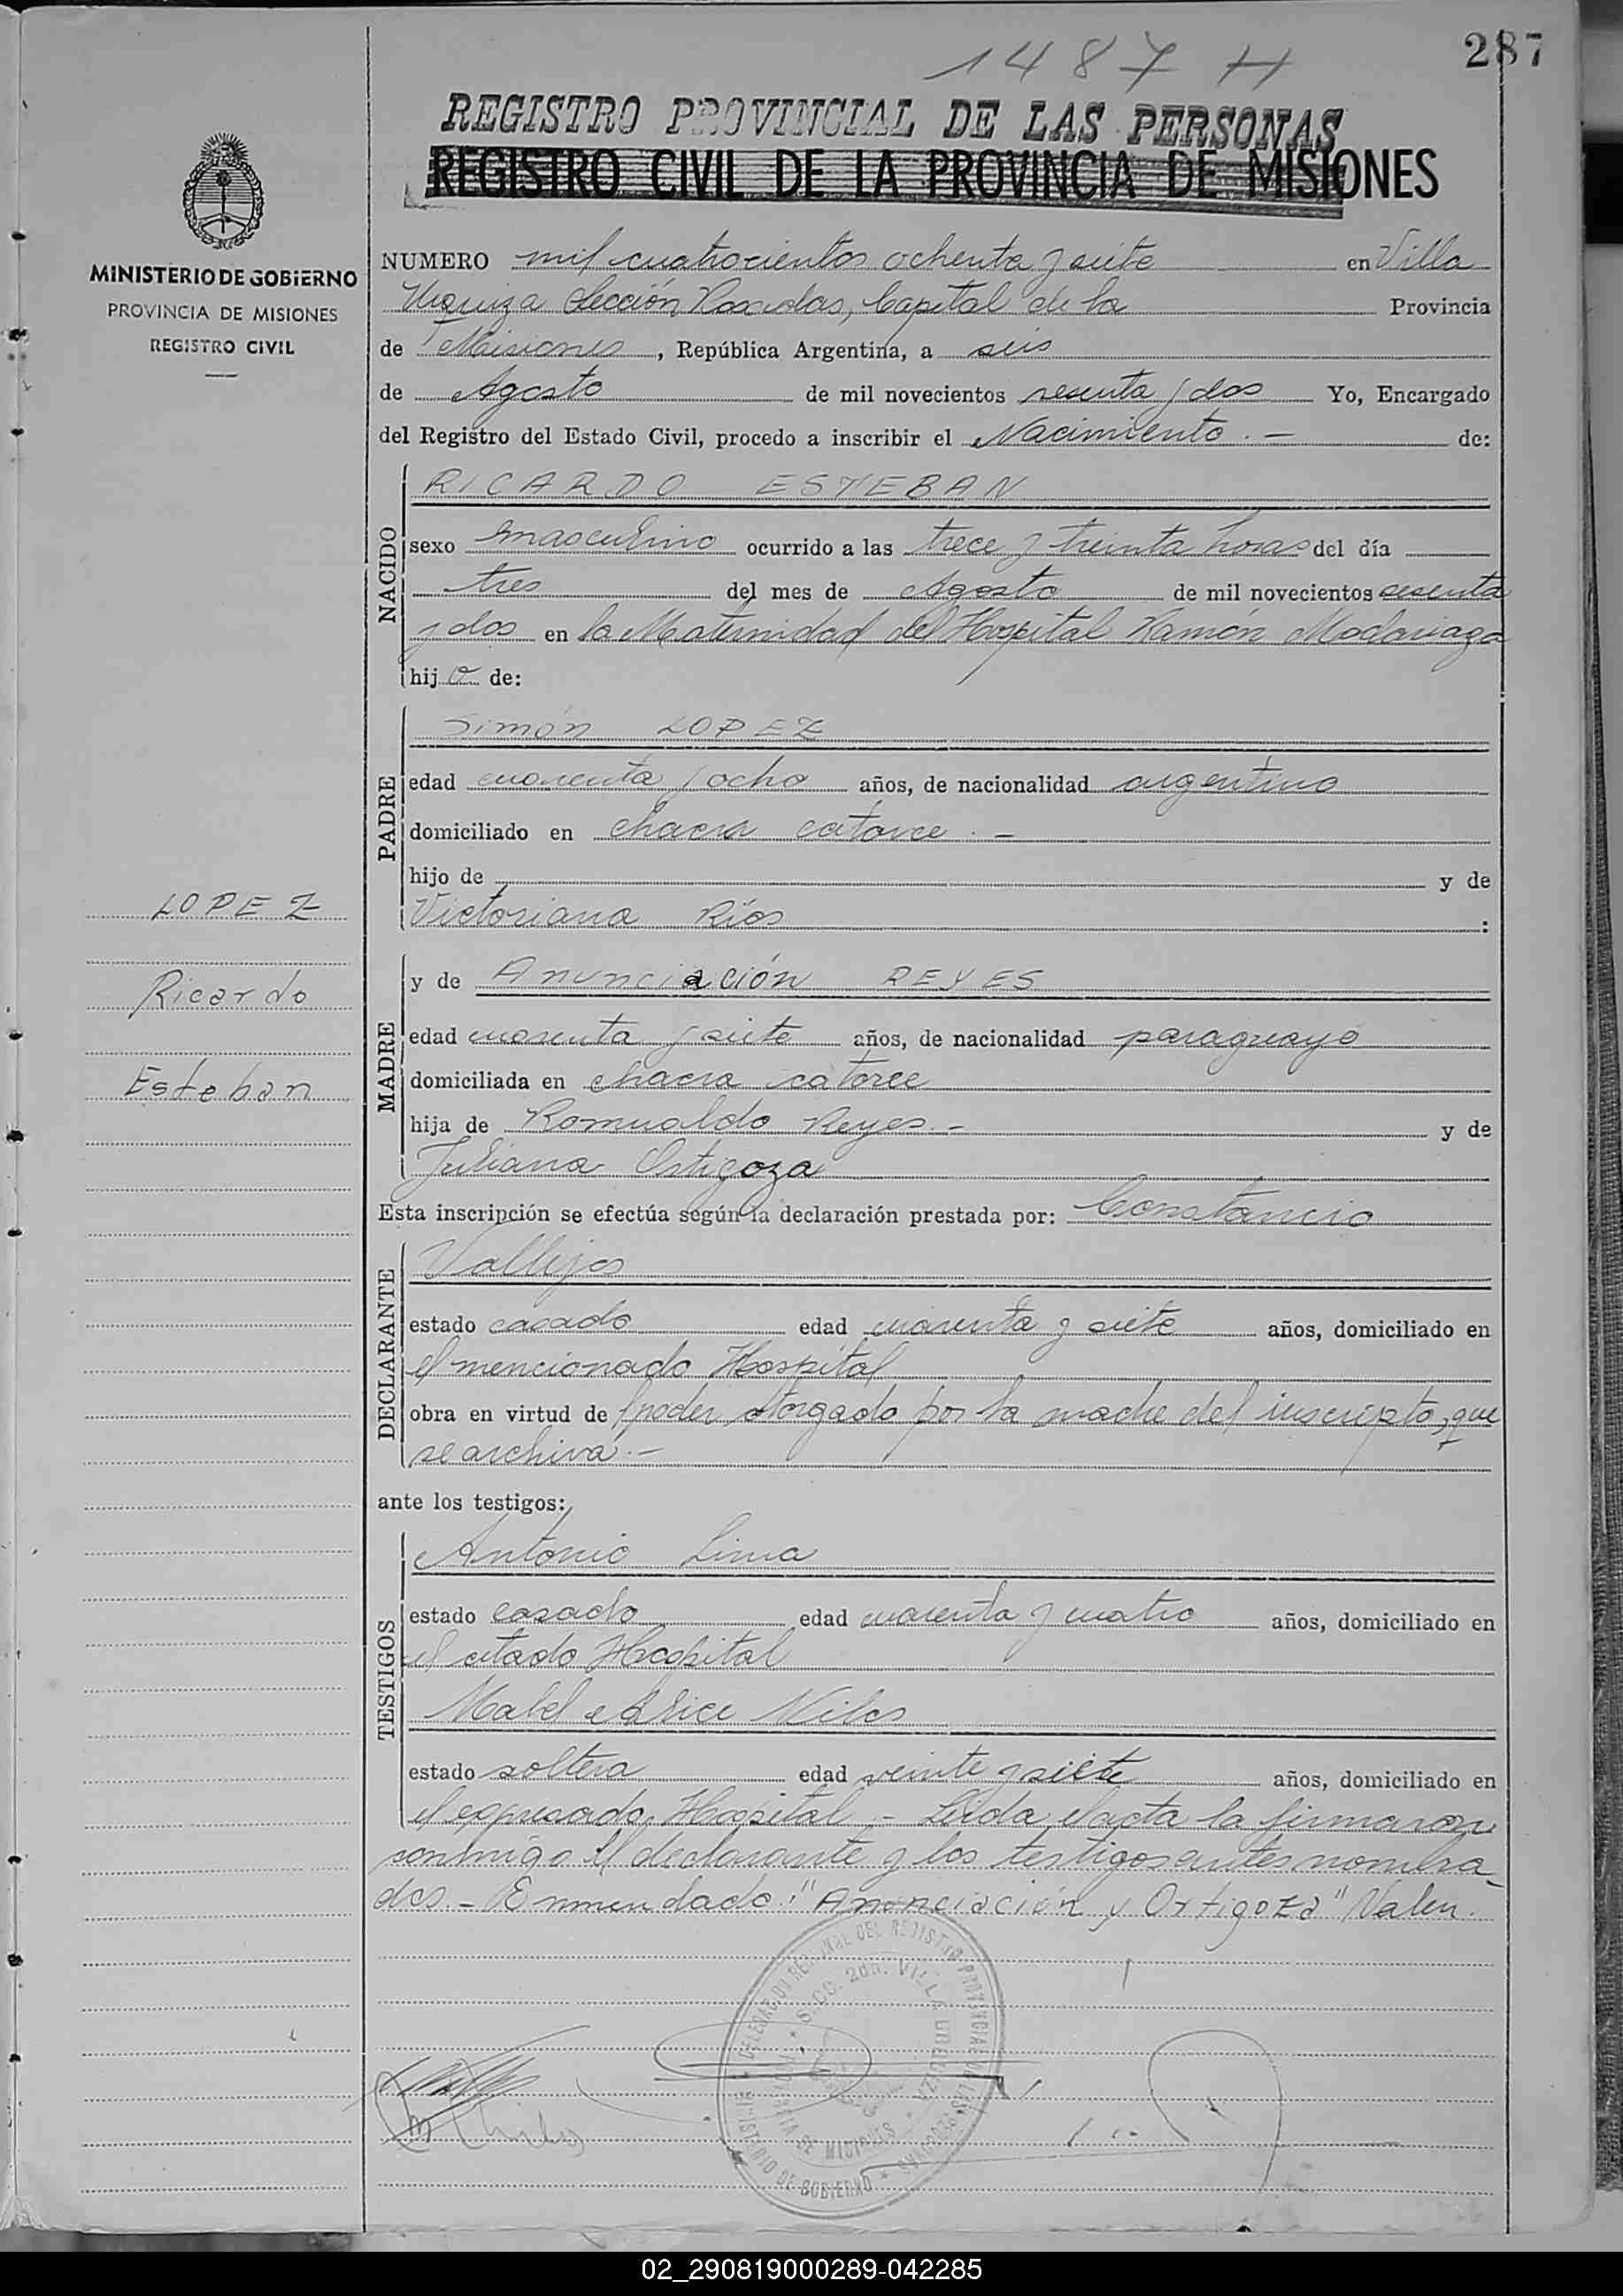 1487 H
287
REGISTRO PROVINCIAL DE LAS PERSONAS
REGISTRO CIVIL DE LA PROVINCIA DE MISIONES
MINISTERIO DE GOBIERNO
PROVINCIA DE MISIONES
REGISTRO CIVIL
NUMERO mil cuatrocientos ochenta y siete en Villa
Urquiza Sección Posadas, Capital de la Provincia
de Misiones, República Argentina, a seis
de Agosto de mil novecientos sesenta y dos Yo, Encargado
del Registro del Estado Civil, procedo a inscribir el Nacimiento.- de:
NACIDO
RICARDO ESTEBAN
sexo masculino ocurrido a las trece y treinta horas del día
tres del mes de Agosto de mil novecientos sesenta
y dos en la Maternidad del Hospital Ramón Madariaga
hijo de:
PADRE
Simón LOPEZ
edad cuarenta y ocho años, de nacionalidad argentino
domiciliado en chacra catorce.-
hijo de y de
Victoriana Ríos :
LOPEZ
Ricardo
Esteban
MADRE
y de Anunciación REYES
edad cuarenta y siete años, de nacionalidad paraguaya
domiciliada en chacra catorce
hija de Romualdo Reyes.- y de
Juliana Ortigoza
Esta inscripción se efectúa según la declaración prestada por: Constancio
DECLARANTE
Vallejos
estado casado edad cuarenta y siete años, domiciliado en
el mencionado Hospital
obra en virtud de poder otorgado por la madre del inscripto, que
se archiva.-
ante los testigos:
TESTIGOS
Antonio Lima
estado casado edad cuarenta y cuatro años, domiciliado en
el citado Hospital
Mabel Alice
estado soltera edad veinte y siete años, domiciliado en
el expresado Hospital.- Leida el acta la firmaron
conmigo el declarante y los testigos antes nombra-
dos.- Enmendado: "Anunciación y Ortigoza" Valen.
DELEGACION DEL REGISTRO PROVINCIAL DE LAS PERSONAS
SECC. 2da. VILLA URQUIZA
MISIONES
MINISTERIO DE GOBIERNO
02_290819000289-042285